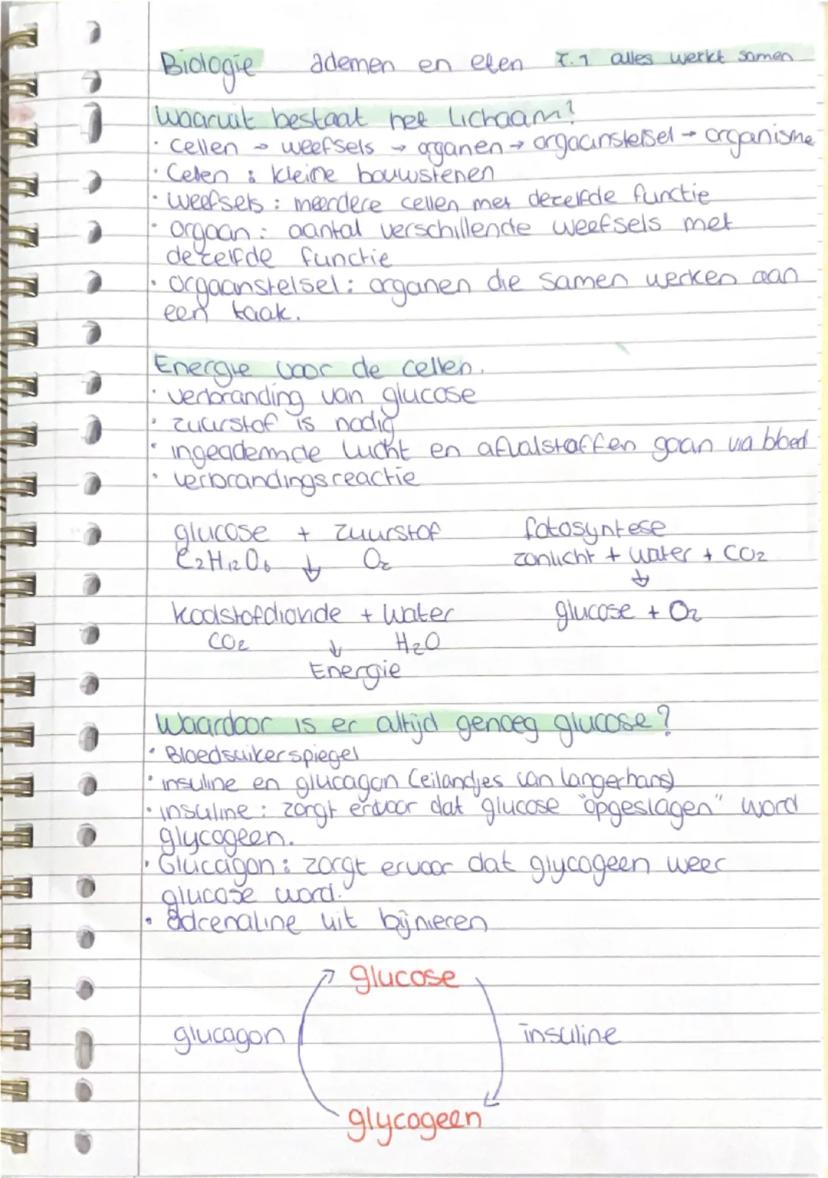 Biologie ademen en eten T.1 alles werkt samen
Waaruit bestaat het lichaam?
· cellen → weefsels → organen → orgaanstelsel → organisme
· Celen : kleine bouwstenen
· weefsels : meerdere cellen met dezelfde functie
· orgaan : aantal verschillende weefsels met
dezelfde functie
· orgaanstelsel : organen die samen werken aan
een taak.
Energie voor de cellen.
· verbranding van glucose
· zuurstof is nodig
· ingeademde lucht en afvalstoffen gaan via bloed
· verbrandingsreactie
glucose + zuurstof
C2H12O6 ↓ O2
koolstofdioxide + water
CO2 ↓ H2O
Energie
fotosyntese
zonlicht + water + CO2
↓
glucose + O2
Waardoor is er altijd genoeg glucose?
· Bloedsuikerspiegel
· insuline en glucagon (eilandjes van langerhans)
· insuline : zorgt ervoor dat glucose "opgeslagen" word
glycogeen.
· Glucagon : zorgt ervoor dat glycogeen weer
glucose word.
· adrenaline uit bijnieren
glucose
glucagon insuline
glycogeen